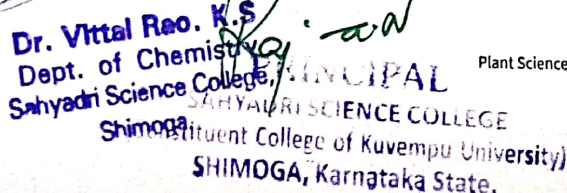 Dr. Vittal Rao. K.S
Dept. of Chemistry
Sahyadri Science College,
Shimoga
PRINCIPAL
SAHYADRI SCIENCE COLLEGE
stituent College of Kuvempu University)
SHIMOGA, Karnataka State.
Plant Science